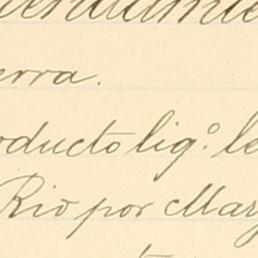 erra.
oducto lig.º le
Rio por Mar